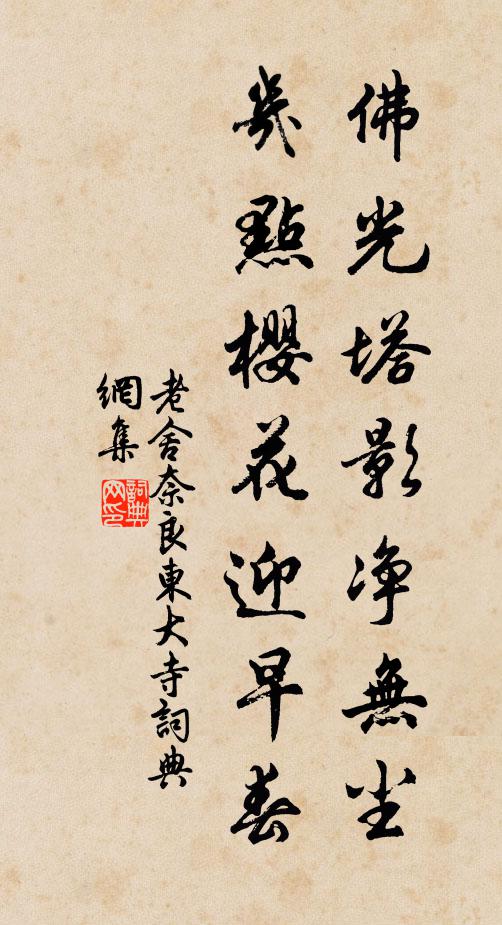 佛光塔影净無尘
幾點櫻花迎早春
老舍奈良東大寺詞典
網集
詞典網印